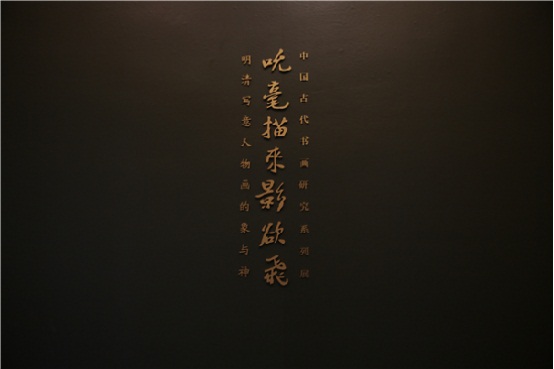 中国古代书画研究系列展
吮毫描来影欲飞
明清写意人物画的象与神